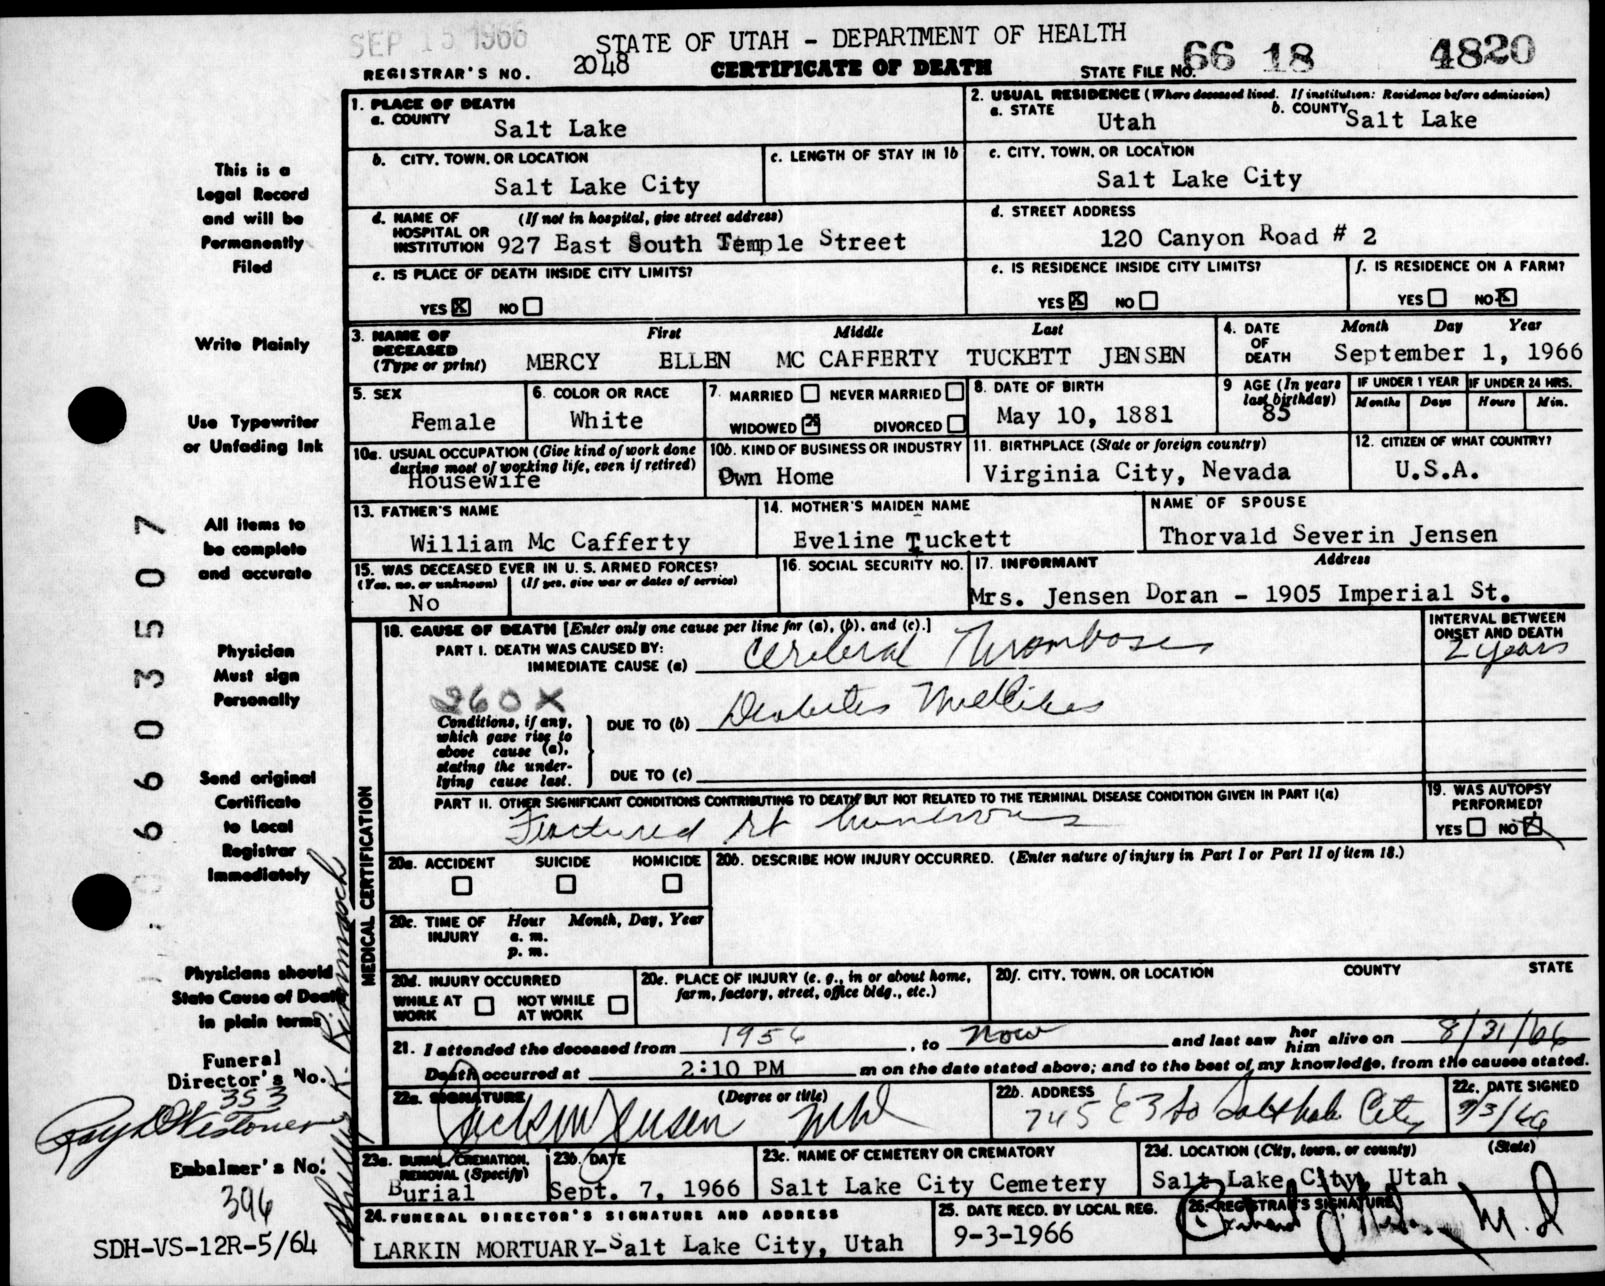 SEP 15 1966
STATE OF UTAH - DEPARTMENT OF HEALTH
REGISTRAR'S NO. 2048
CERTIFICATE OF DEATH
STATE FILE NO. 66 18 4820
1. PLACE OF DEATH
a. COUNTY
Salt Lake
2. USUAL RESIDENCE (Where deceased lived. If institution: Residence before admission)
a. STATE
Utah
b. COUNTY
Salt Lake
b. CITY, TOWN, OR LOCATION
Salt Lake City
c. LENGTH OF STAY IN 1b
c. CITY, TOWN, OR LOCATION
Salt Lake City
d. NAME OF HOSPITAL OR INSTITUTION
(If not in hospital, give street address)
927 East South Temple Street
d. STREET ADDRESS
120 Canyon Road # 2
e. IS PLACE OF DEATH INSIDE CITY LIMITS?
YES X NO
e. IS RESIDENCE INSIDE CITY LIMITS?
YES X NO
f. IS RESIDENCE ON A FARM?
YES NO X
3. NAME OF DECEASED (Type or print)
First Middle Last
MERCY ELLEN MC CAFFERTY TUCKETT JENSEN
4. DATE OF DEATH
Month Day Year
September 1, 1966
5. SEX
Female
6. COLOR OR RACE
White
7. MARRIED NEVER MARRIED
WIDOWED X DIVORCED
8. DATE OF BIRTH
May 10, 1881
9 AGE (In years last birthday)
85
IF UNDER 1 YEAR
Months Days
IF UNDER 24 HRS.
Hours Min.
10a. USUAL OCCUPATION (Give kind of work done during most of working life, even if retired)
Housewife
10b. KIND OF BUSINESS OR INDUSTRY
Own Home
11. BIRTHPLACE (State or foreign country)
Virginia City, Nevada
12. CITIZEN OF WHAT COUNTRY?
U.S.A.
13. FATHER'S NAME
William Mc Cafferty
14. MOTHER'S MAIDEN NAME
Eveline Tuckett
NAME OF SPOUSE
Thorvald Severin Jensen
15. WAS DECEASED EVER IN U. S. ARMED FORCES?
(Yes, no, or unknown) (If yes, give war or dates of service)
No
16. SOCIAL SECURITY NO.
17. INFORMANT Address
Mrs. Jensen Doran - 1905 Imperial St.
MEDICAL CERTIFICATION
18. CAUSE OF DEATH [Enter only one cause per line for (a), (b), and (c).]
PART I. DEATH WAS CAUSED BY:
IMMEDIATE CAUSE (a) Cerebral Thrombosis
INTERVAL BETWEEN ONSET AND DEATH
2 years
260X
Conditions, if any, which gave rise to above cause (a), stating the underlying cause last.
DUE TO (b) Diabetes Mellitus
DUE TO (c)
PART II. OTHER SIGNIFICANT CONDITIONS CONTRIBUTING TO DEATH BUT NOT RELATED TO THE TERMINAL DISEASE CONDITION GIVEN IN PART I(a)
Fractured rt humerous
19. WAS AUTOPSY PERFORMED?
YES NO X
20a. ACCIDENT SUICIDE HOMICIDE
20b. DESCRIBE HOW INJURY OCCURRED. (Enter nature of injury in Part I or Part II of item 18.)
20c. TIME OF INJURY
Hour Month, Day, Year
a. m.
p. m.
20d. INJURY OCCURRED
WHILE AT WORK NOT WHILE AT WORK
20e. PLACE OF INJURY (e. g., in or about home, farm, factory, street, office bldg., etc.)
20f. CITY, TOWN, OR LOCATION COUNTY STATE
21. I attended the deceased from 1956, to now and last saw her him alive on 8/31/66
Death occurred at 2:10 PM m on the date stated above; and to the best of my knowledge, from the causes stated.
22a. SIGNATURE (Degree or title)
Jensen MD
22b. ADDRESS
745 E 3 So Salt Lake City
22c. DATE SIGNED
9/3/66
23a. BURIAL, CREMATION, REMOVAL (Specify)
Burial
23b. DATE
Sept. 7, 1966
23c. NAME OF CEMETERY OR CREMATORY
Salt Lake City Cemetery
23d. LOCATION (City, town, or county) (State)
Salt Lake City, Utah
24. FUNERAL DIRECTOR'S SIGNATURE AND ADDRESS
LARKIN MORTUARY-Salt Lake City, Utah
25. DATE RECD. BY LOCAL REG.
9-3-1966
26. REGISTRAR'S SIGNATURE
M. D
This is a
Legal Record
and will be
Permanently
Filed
Write Plainly
Use Typewriter
or Unfading Ink
All items to
be complete
and accurate
Physician
Must sign
Personally
Send original
Certificate
to Local
Registrar
Immediately
Physicians should
State Cause of Death
in plain terms
Funeral
Director's No.
353
Embalmer's No.
396
SDH-VS-12R-5/64
6603507